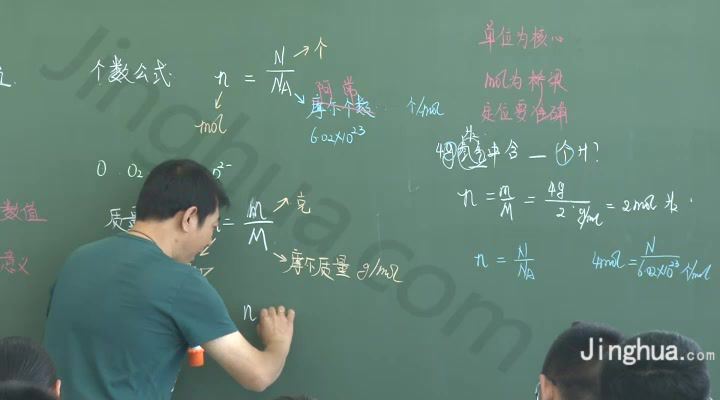 个数公式 n = N/NA → 个
mol
阿常
摩尔个数 个/mol
6.02×10²³
O . O₂ O²⁻
质量 = m/M → 克
摩尔质量 g/mol
n
数值
意义
单位为核心
mol为桥梁
定位要准确
H₂
4g氢气中含 — 个H?
n = m/M = 4g/2 g/mol = 2mol H₂.
n = N/NA 4mol = N/6.02×10²³ 个/mol
Jinghua.com
Jinghua.com